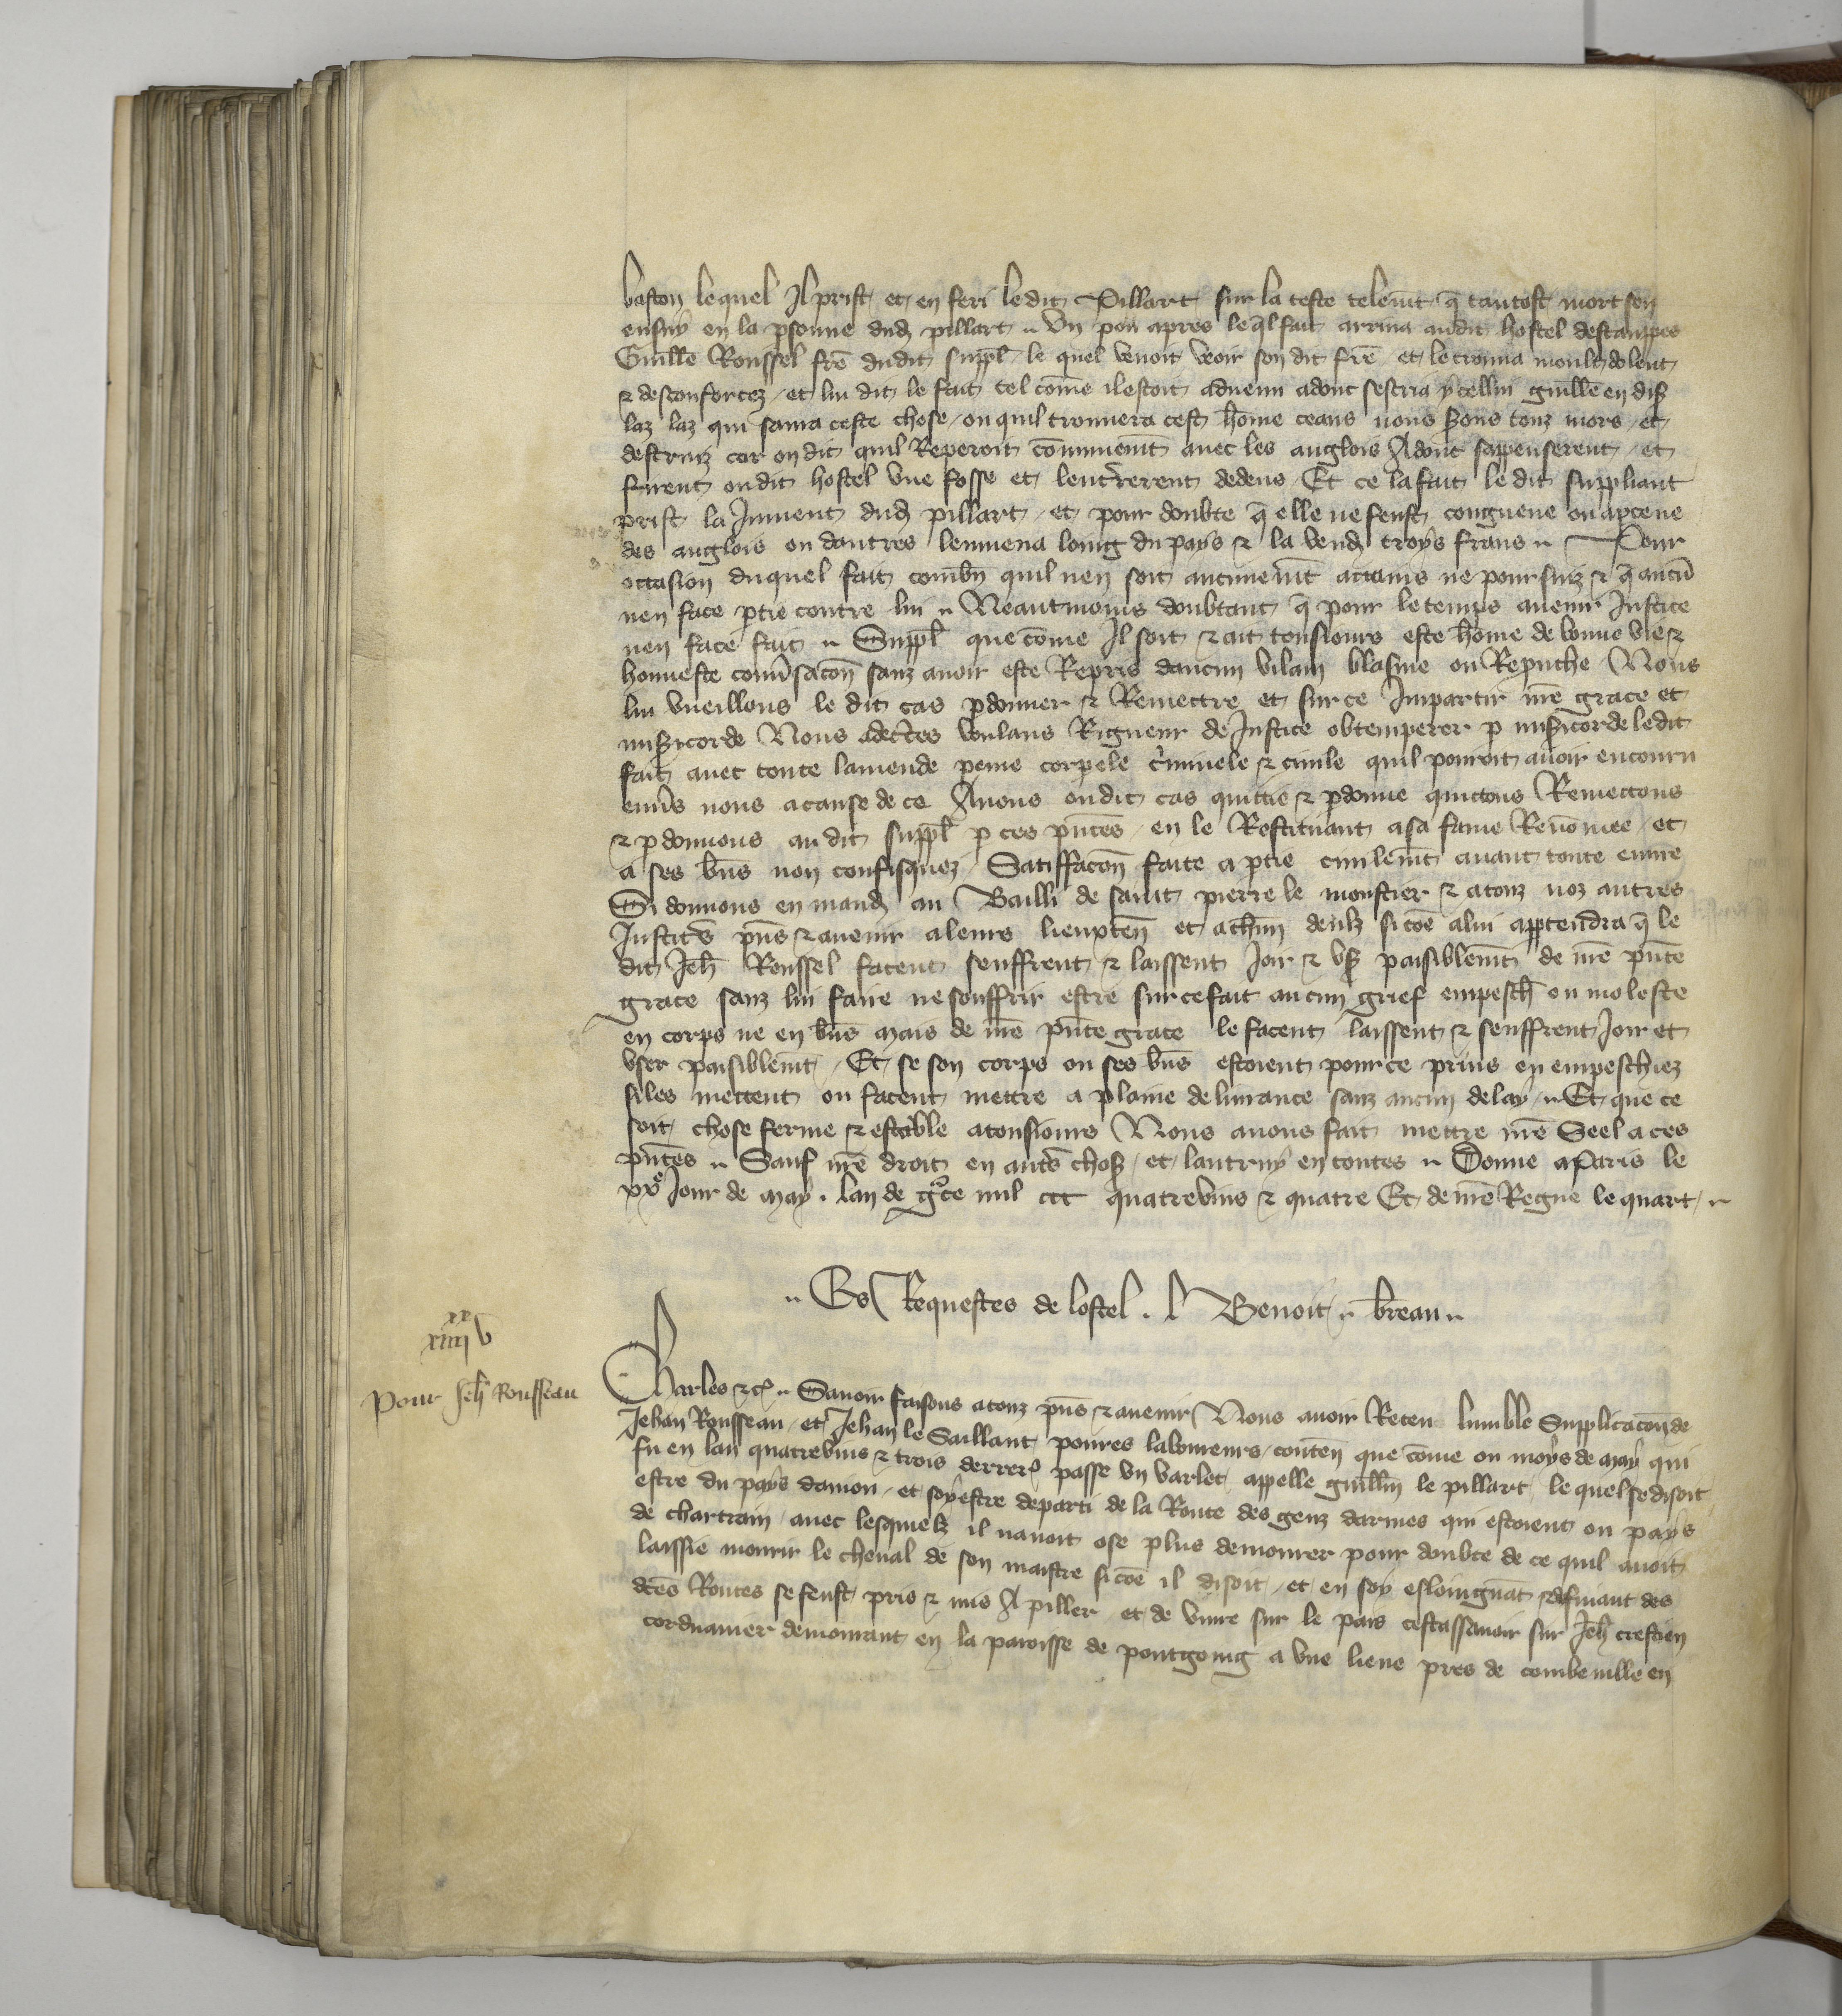 baston lequel Il prist et en feri ledit Pillart sur la teste telemt q̄ tantost mort sen
ensuy en la ꝑsonne dud pillart .. Un pou apres leq̄l fait arriva audit hostel destampes
Guille Roussel frē dudit suppl le quel venoit veoir son dit frē et le trouva moult dolent
& desconfortez et lui dit le fait tel cōme il estoit advenu adonc sescria ycellui guille en dis
laz laz qui saura ceste chose ou quil trouvera cest hōme ceans nous sōns touz mors et
destruiz car on dit quil Reperoit cōmunemt avec les anglois Adonc sappenserent et
firent oudit hostel une fosse et lenterrerent dedens Et ce la fait le dit suppliant
prist la Jument dud pillart et pour doubte q̄ elle ne feust congneue ou apceue
des anglois ou dautres lenmena loing du pays & la vend troys frans .. Pour
occasion duquel fait combn̄ quil nen soit aucunemt actains ne poursuiz & q̄ aucū
nen face ptie contre lui .. Neantmoins doubtant q̄ pour le temps avenir Justice
nen face fait .. Suppl que cōme Il soit & ait tousiours este hōme de bonne vie &
honneste conv̄sacōn sanz avoir este Repris daucun vilain blasme ou Reprouche Nous
lui vueillons le dit cas pdonner & Remettre et sur ce Impartir nrē grace et
miscorde Nous adecertes voulans Rigueur de Justice obtemperer p miscorde ledit
fait avec toute lamende peine corpele criminele & civile quil pouroit avoir encouru
envs nous a cause de ce Avons oudit cas quittie & pdonne quictons Remettons
& pdonnons au dit suppl p ces pntes en le Restituant a sa fame Renōmee et
a ses bns non confisquez Satiffacōn faite a ptie civilemt avant toute euvre
Si donnons en mand au Bailli de saint pierre le moustier & a touz noz autres
Justics pns & avenir a leurs lieuxten et a chun deulz si cōe a lui apptendra q̄ le
dit Jeh Roussel facent seuffrent & laissent Joir & us paisiblemt de nrē pnte
grace sanz lui faire ne souffrir estre sur ce fait aucun grief empesch ou moleste
en corps ne en bns mais de nrē pnte grace le facent laissent & seuffrent Joir et
user paisiblemt Et se son corps ou ses bns estoient pour ce prins en empeschiez
si les mettent ou facent mettre a plaine delivrance sanz aucun delay .. Et que ce
soit chose ferme & estable a tousiours Nous avons fait mettre nrē Seel a ces
pntes .. Sauf nrē droit en auts choses et lautruy en toutes .. Donne a Paris le
xxe Jour de may . lan de gce mil ccc quatrevins & quatre Et de nrē Regne le quart ..
.. Es Requestes de lostel . l Benoit .. breau ..
xx
iiii v
Pour Jeh Rousseau
Charles &c .. Savoir faisons a touz pns & avenir Nous avoir Receu lumble Supplicacōn de
Jehan Rousseau et Jehan le Saillant poures laboureurs conten que cōme ou moys de may qui
fu en lan quatrevins & trois derrer passe un varlet appelle guillm le pillart le quel se disoit
estre du pays daniou et soy estre departi de la Route des genz darmes qui estoient ou pays
de chartrain avec lesquelz il navoit ose plus demourer pour doubte de ce quil avoit
laissie mourir le cheval de son maistre si cōe il disoit et en soy esloingnāt & des
dces Routes se feust pris & mis A piller et de vivre sur le pais cestassavoir sur Jeh crestien
cordouanier demourant en la paroisse de pontgoing a une lieue pres de combeville en